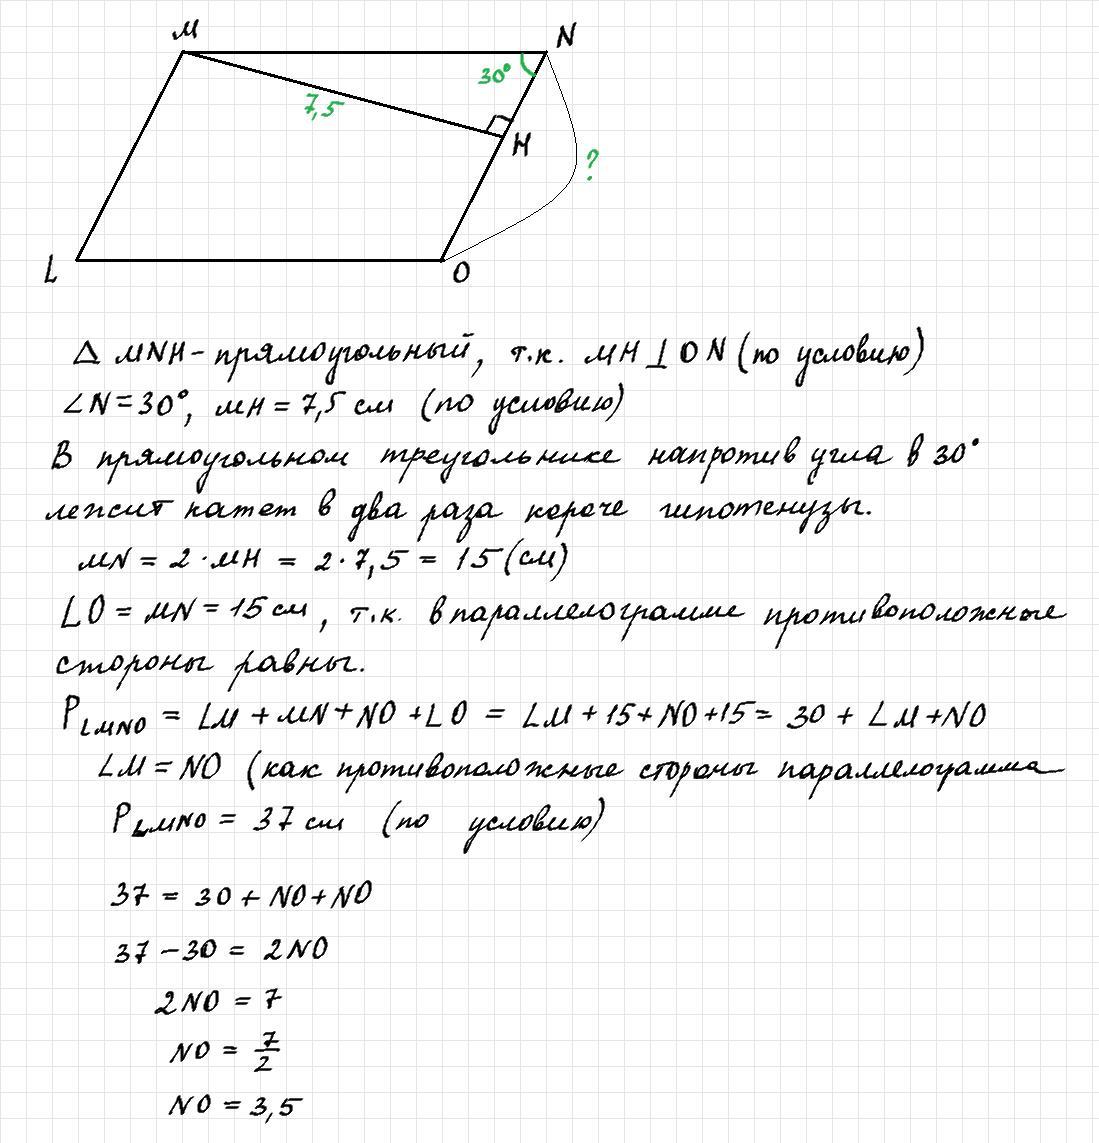 M
N
30°
7,5
H
?
L
O
Δ MNH - прямоугольный, т.к. MH ⊥ ON (по условию)
∠N = 30°, MH = 7,5 см (по условию)
В прямоугольном треугольнике напротив угла в 30°
лежит катет в два раза короче гипотенузы.
MN = 2 · MH = 2 · 7,5 = 15 (см)
LO = MN = 15 см, т.к. в параллелограмме противоположные
стороны равны.
P_LMNO = LM + MN + NO + LO = LM + 15 + NO + 15 = 30 + LM + NO
LM = NO (как противоположные стороны параллелограмма
P_LMNO = 37 см (по условию)
37 = 30 + NO + NO
37 - 30 = 2NO
2NO = 7
NO = 7/2
NO = 3,5